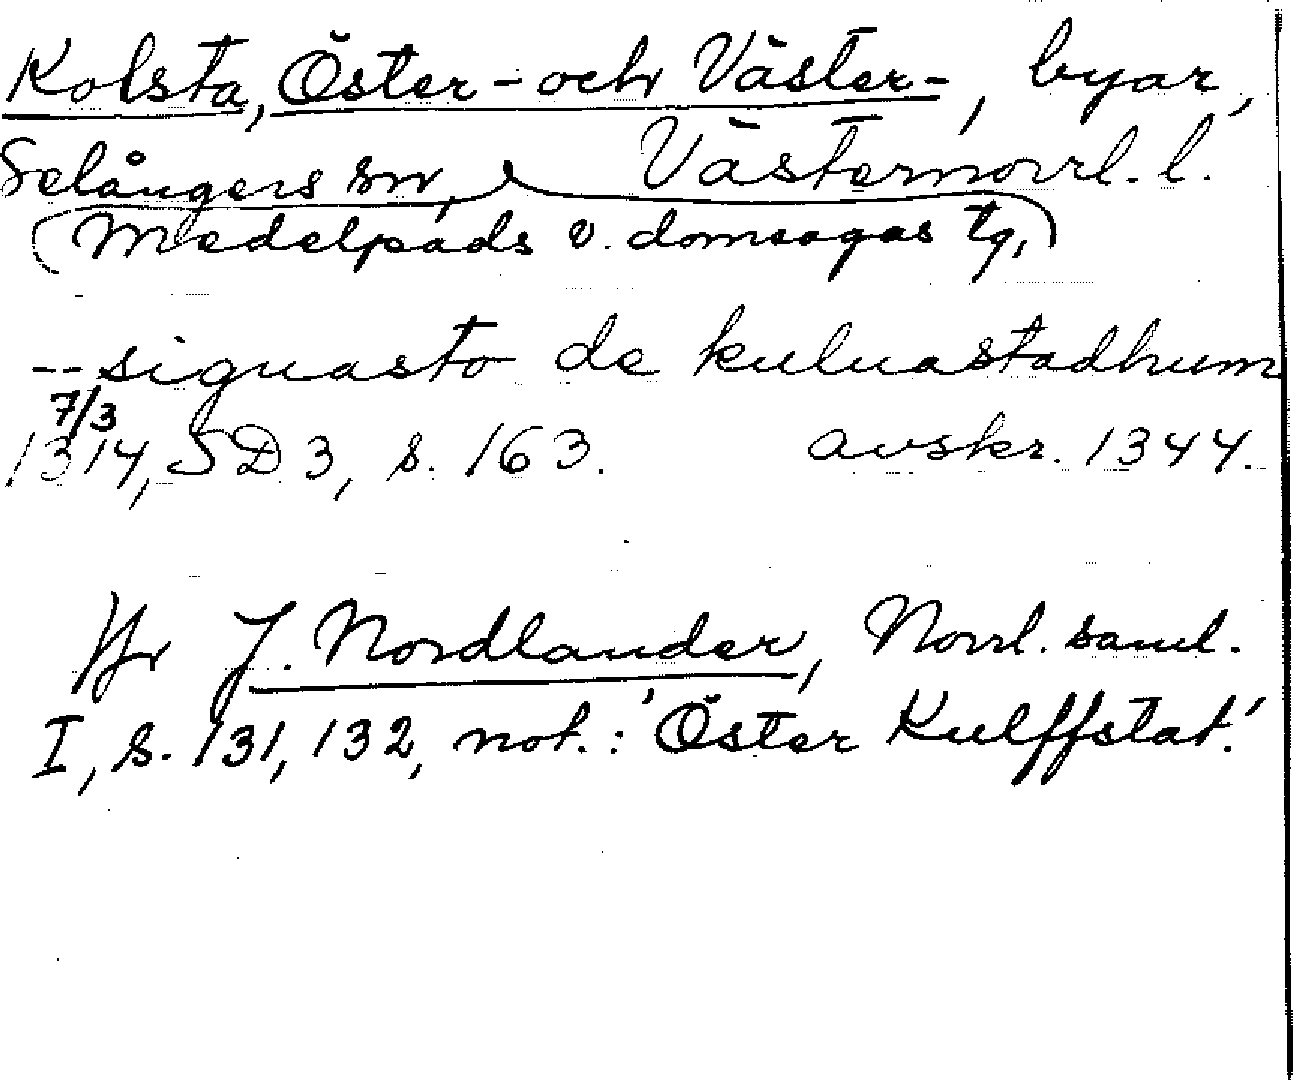 Kolsta, Öster- och Väster-, byar,
Selångers sn, Västernorrl. l.
(Medelpads v. domsagas tg,)
-- siguasto de kuluastadhum
7/3
1314, SD 3, s. 163. avskr. 1344.
Jfr J. Nordlander, Norrl. saml.
I, s. 131, 132, not.: 'Öster Kulffstat.'